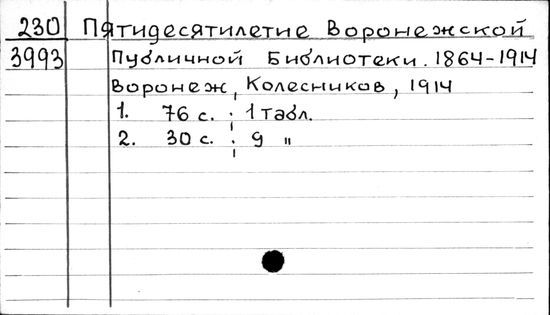 230 Пятидесятилетие Воронежской
3993 Публичной Библиотеки. 1864-1914
Воронеж, Колесников, 1914
1. 76 с. ; 1 табл.
2. 30 с. ; 9 "